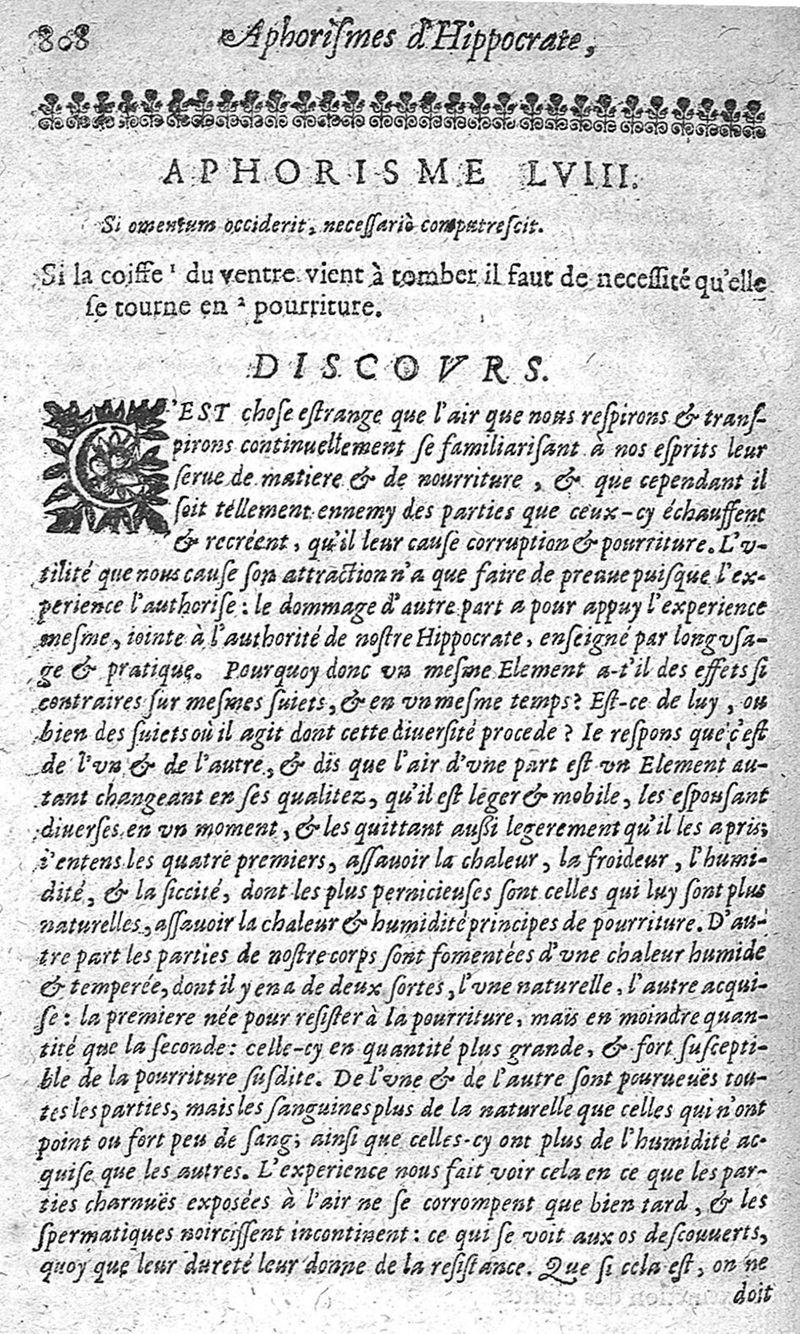 808 Aphoriſmes d'Hippocrate,
APHORISME LVIII.
Si omentum occiderit, neceſſariò computreſcit.
Si la coiffe ¹ du ventre vient à tomber il faut de neceſſité qu'elle
ſe tourne en ² pourriture.
DISCOVRS.
C'EST choſe eſtrange que l'air que nous reſpirons & tranſ-
pirons continuellement ſe familiariſant à nos eſprits leur
ſerue de matiere & de nourriture, & que cependant il
ſoit tellement ennemy des parties que ceux-cy échauffent
& recréent, qu'il leur cauſe corruption & pourriture. L'v-
tilité que nous cauſe ſon attraction n'a que faire de preuue puiſque l'ex-
perience l'authoriſe : le dommage d'autre part a pour appuy l'experience
meſme, iointe à l'authorité de noſtre Hippocrate, enſeigné par long vſa-
ge & pratique. Pourquoy donc vn meſme Element a-t'il des effets ſi
contraires ſur meſmes ſuiets, & en vn meſme temps? Eſt-ce de luy, ou
bien des ſuiets où il agit dont cette diuerſité procede? Ie reſpons que c'eſt
de l'vn & de l'autre, & dis que l'air d'vne part eſt vn Element au-
tant changeant en ſes qualitez, qu'il eſt léger & mobile, les eſpouſant
diuerſes en vn moment, & les quittant auſſi legerement qu'il les a pris;
i'entens les quatre premiers, aſſauoir la chaleur, la froideur, l'humi-
dité, & la ſiccité, dont les plus pernicieuſes ſont celles qui luy ſont plus
naturelles, aſſauoir la chaleur & humidité principes de pourriture. D'au-
tre part les parties de noſtre corps ſont fomentées d'vne chaleur humide
& temperée, dont il y en a de deux ſortes, l'vne naturelle, l'autre acqui-
ſe : la premiere née pour reſiſter à la pourriture, mais en moindre quan-
tité que la ſeconde : celle-cy en quantité plus grande, & fort ſuſcepti-
ble de la pourriture ſuſdite. De l'vne & de l'autre ſont pourueuës tou-
tes les parties, mais les ſanguines plus de la naturelle que celles qui n'ont
point ou fort peu de ſang; ainſi que celles-cy ont plus de l'humidité ac-
quiſe que les autres. L'experience nous fait voir cela en ce que les par-
ties charnuës exposées à l'air ne ſe corrompent que bien tard, & les
ſpermatiques noirciſſent incontinent : ce qui ſe voit aux os deſcouuerts,
quoy que leur dureté leur donne de la reſiſtance. Que ſi cela eſt, on ne
doit